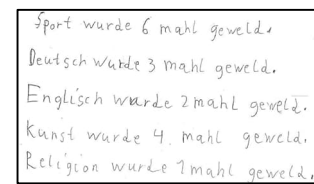 Sport wurde 6 mahl geweld.
Deutsch wurde 3 mahl geweld.
Englisch wurde 2 mahl geweld.
Kunst wurde 4. mahl geweld.
Religion wurde 1 mahl geweld.